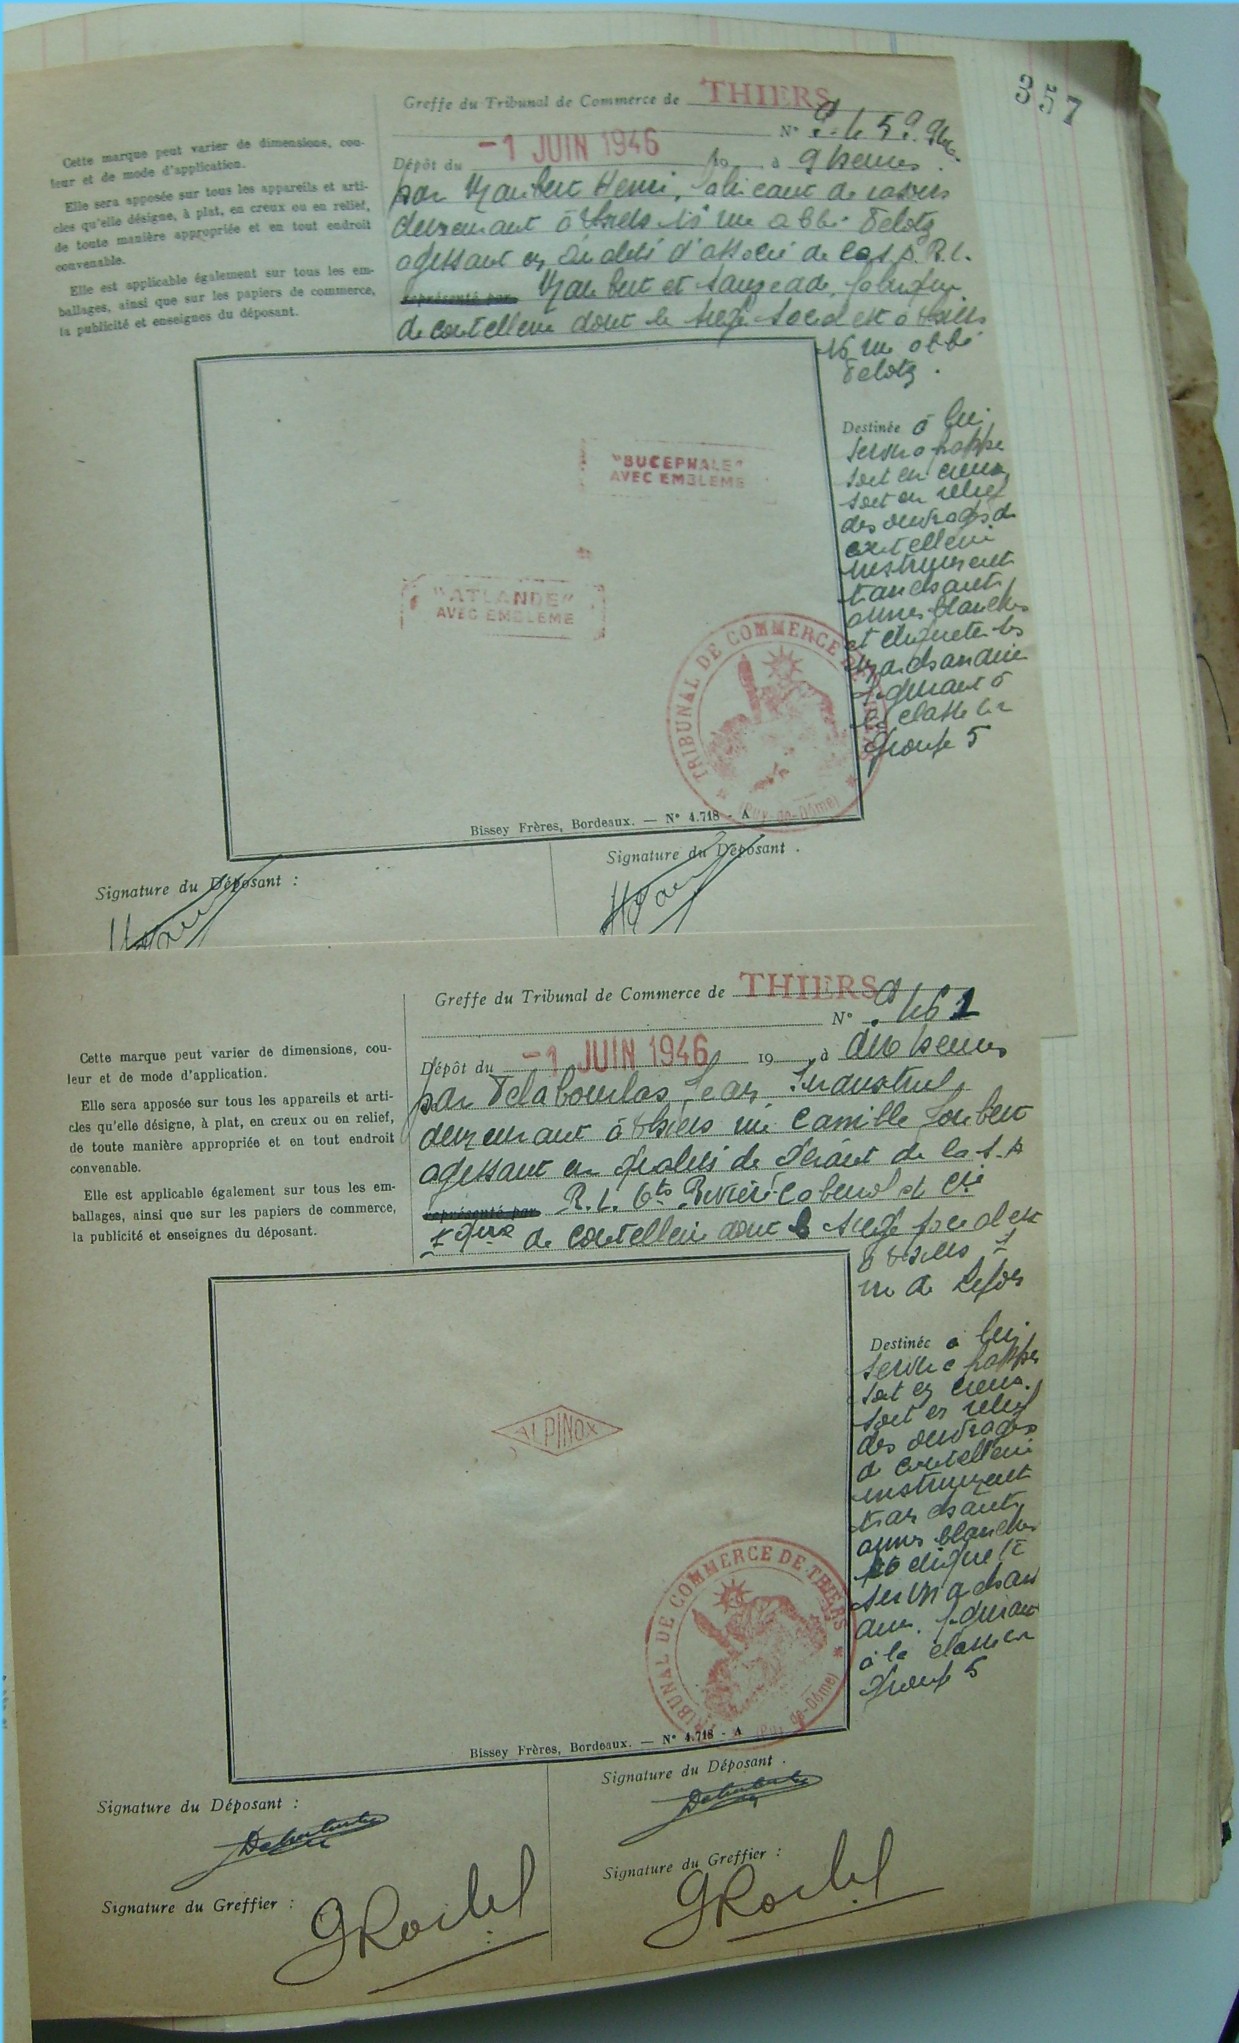 357
Greffe du Tribunal de Commerce de THIERS
N°
Dépôt du -1 JUIN 1946 à 9 heures
par Henri, fabricant de rasoirs
demeurant à Thiers 16 rue abbé Delotz
agissant en qualité d'associé de la S.A.R.L.
représenté par et Sauzedde, fabrique
de coutellerie dont le siège social est à Thiers
16 rue abbé
Delotz.
Cette marque peut varier de dimensions, cou-
leur et de mode d'application.
Elle sera apposée sur tous les appareils et arti-
cles qu'elle désigne, à plat, en creux ou en relief,
de toute manière appropriée et en tout endroit
convenable.
Elle est applicable également sur tous les em-
ballages, ainsi que sur les papiers de commerce,
la publicité et enseignes du déposant.
"BUCEPHALE"
AVEC EMBLEME
"ATLANDE"
AVEC EMBLEME
TRIBUNAL DE COMMERCE DE THIERS
(Puy-de-Dôme)
Destinée à lui
servir à frapper
soit en creux
soit en relief
des ouvrages de
coutellerie
instrument
tranchants
armes blanches
et étiqueter les
marchandises
figurant à
la classe
groupe 5
Bissey Frères, Bordeaux. — N° 4.718 - A
Signature du Déposant :
Signature du Déposant .
Greffe du Tribunal de Commerce de THIERS
N° 461
Dépôt du -1 JUIN 1946 19 à dix heures
par Delabourlas Jean Industriel
demeurant à Thiers rue Camille Joubert
agissant en qualité de Gérant de la S.A
représenté par R.L. Ets et Cie
de coutellerie dont le siège social est
à Thiers
rue de
Cette marque peut varier de dimensions, cou-
leur et de mode d'application.
Elle sera apposée sur tous les appareils et arti-
cles qu'elle désigne, à plat, en creux ou en relief,
de toute manière appropriée et en tout endroit
convenable.
Elle est applicable également sur tous les em-
ballages, ainsi que sur les papiers de commerce,
la publicité et enseignes du déposant.
ALPINOX
TRIBUNAL DE COMMERCE DE THIERS
(Puy-de-Dôme)
Destinée à lui
servir à frapper
soit en creux
soit en relief
des ouvrages
de coutellerie
instrument
tranchants
armes blanches
figurant
à la classe
groupe 5
Bissey Frères, Bordeaux. — N° 4.718 - A
Signature du Déposant :
Signature du Déposant .
Signature du Greffier :
Signature du Greffier :